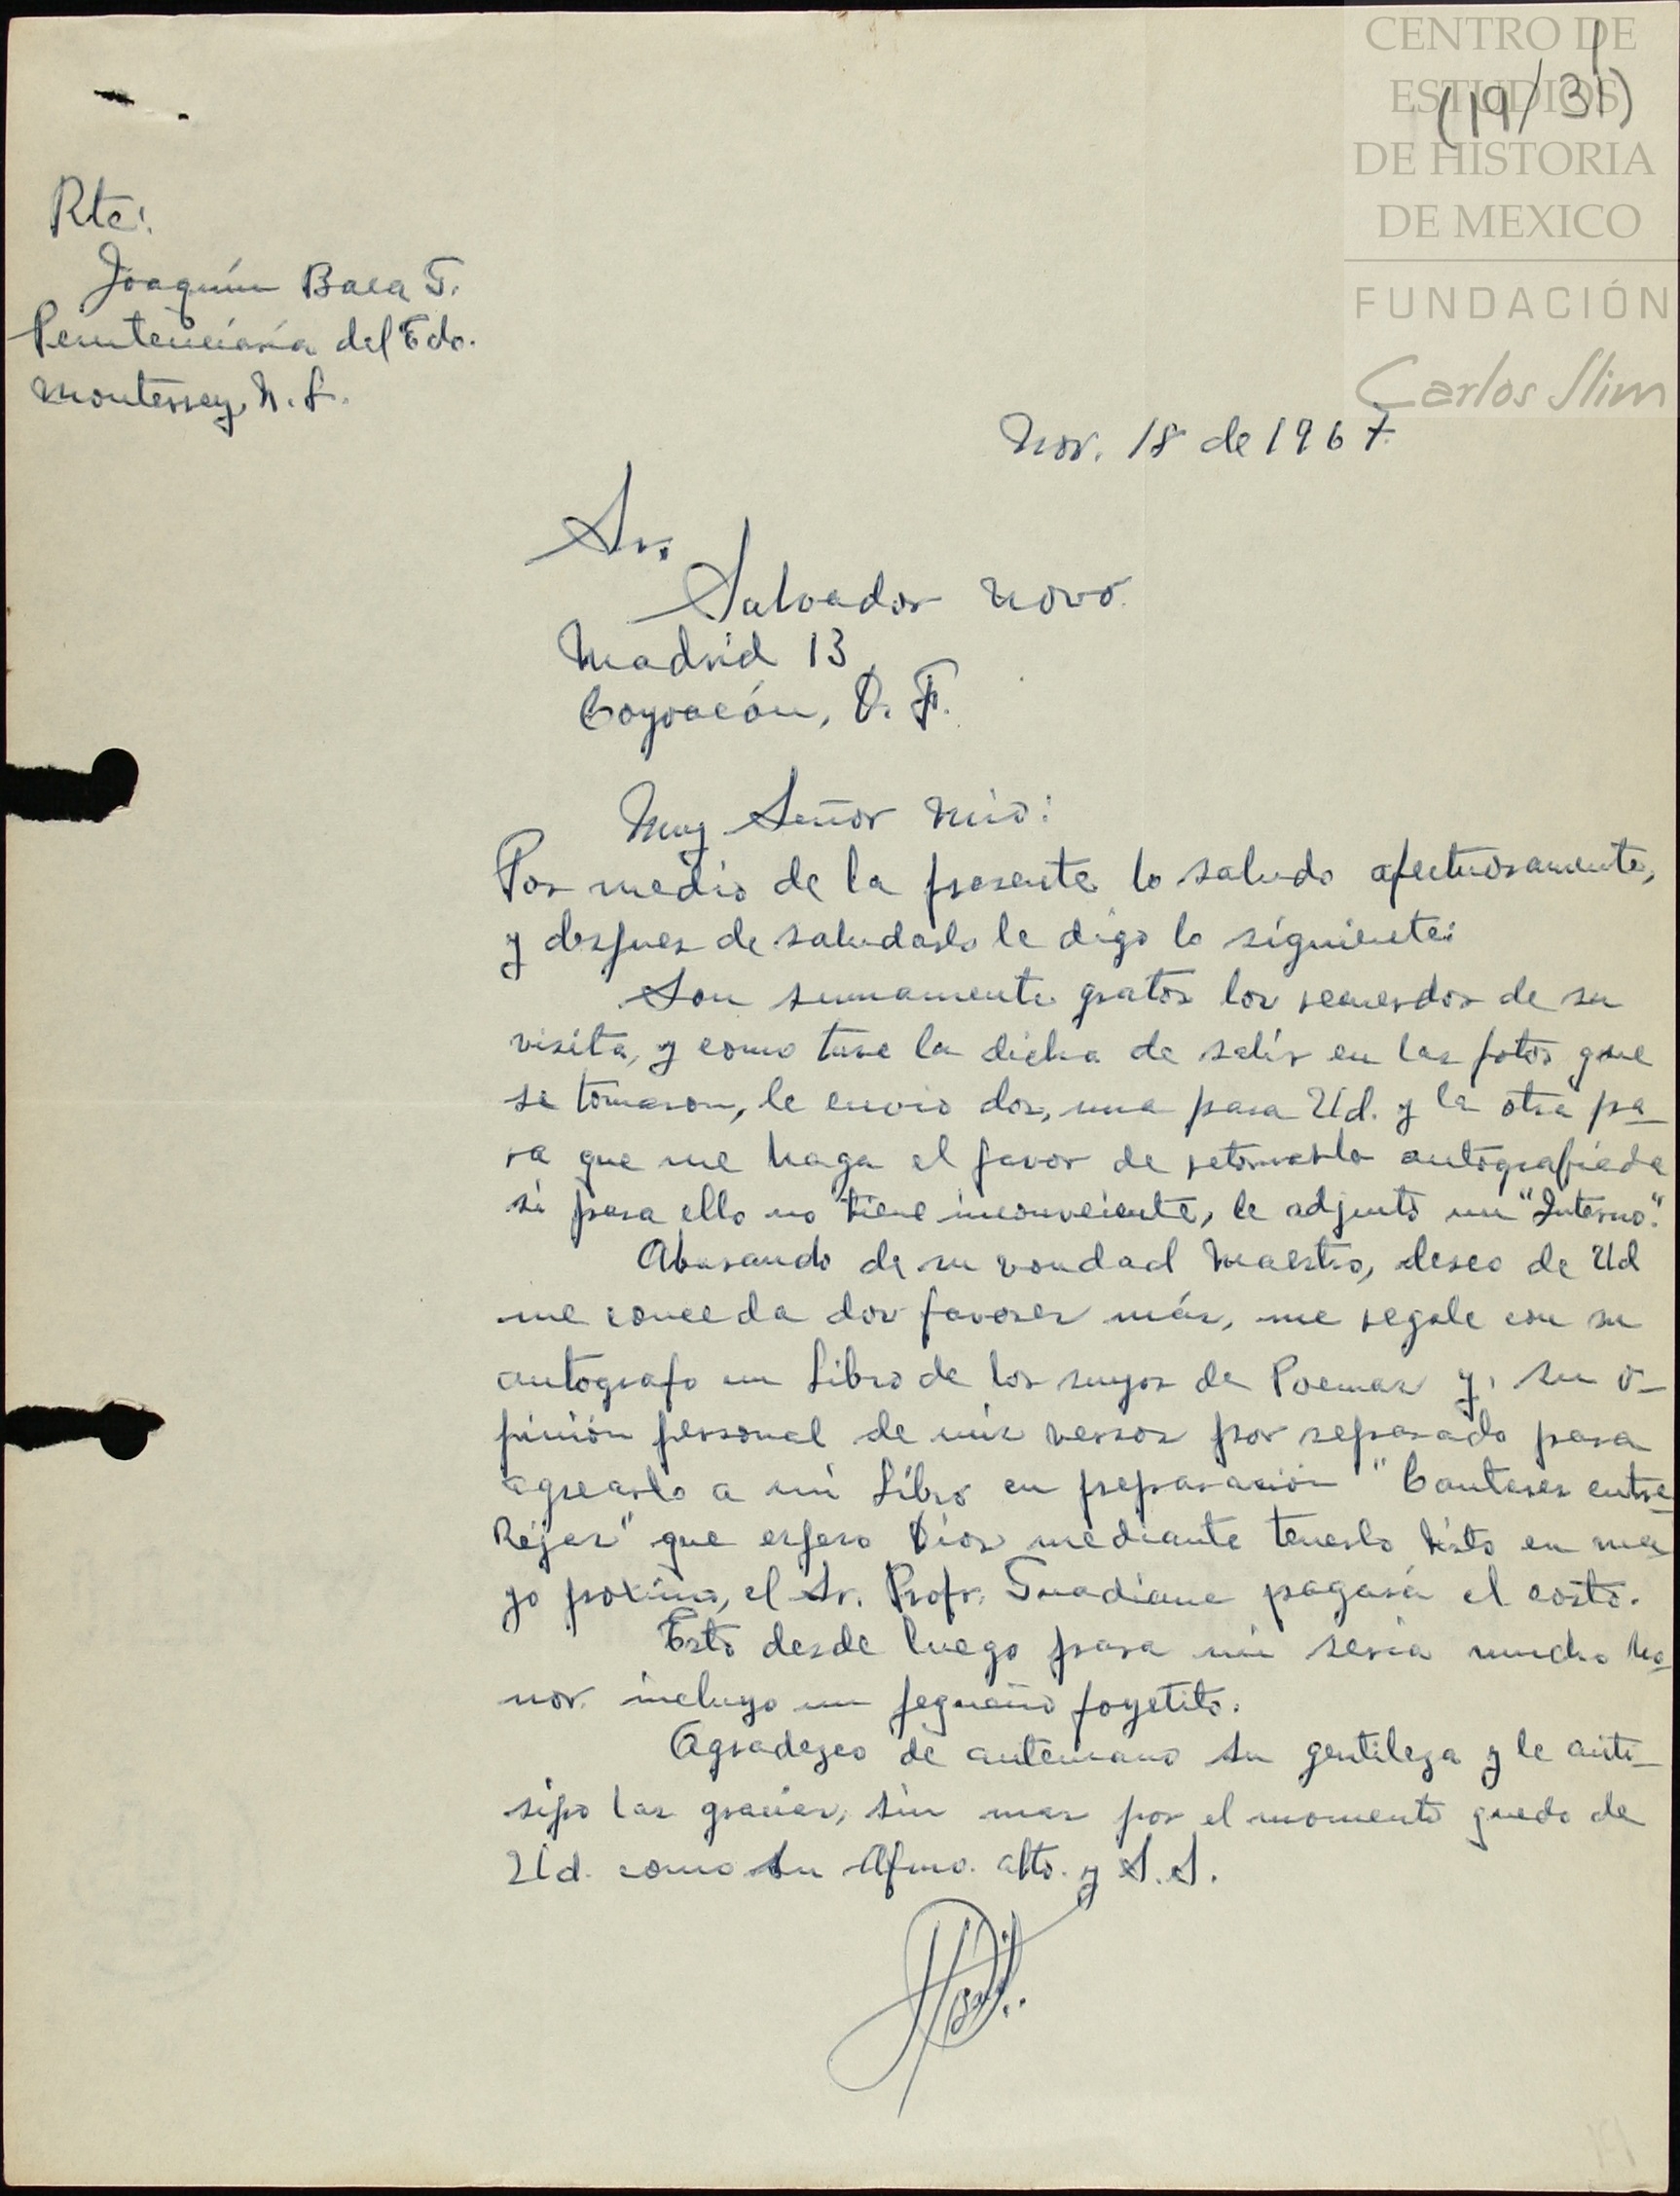 CENTRO DE
ESTUDIOS
DE HISTORIA
DE MEXICO
FUNDACIÓN
Carlos Slim
1
(19/31)
Rte:
Joaquín Baca T.
Penitenciaría del Edo.
Monterrey, N. L.
Nov. 18 de 1967.
Sr.
Salvador Novo.
Madrid 13
Coyoacán, D. F.
Muy Señor Mio:
Por medio de la presente lo saludo afectuosamente,
y despues de saludarlo le digo lo siguiente:
Son sumamente gratos los recuerdos de su
visita, y como tuve la dicha de salír en las fotos que
se tomaron, le envio dos, una para Ud. y la otra pa-
ra que me haga el favor de retornarla autografiada
si para ello no tiene inconveiente, le adjunto un "Interno".
Abusando de su vondad Maestro, deseo de Ud
me conceda dos favores más, me regale con su
autografo un Libro de los suyos de Poemas y, su o-
pinión personal de mis versos por separado para
agrearlo a mi Libro en preparación "Cantares entre
Rejas" que espero Dios mediante tenerlo listo en ma-
yo proximo, el Sr. Profr. Guadiana pagará el costo.
Esto desde luego para mi seria mucho ho-
nor. incluyo un pequeño foyetito.
Agradezco de antemano su gentileza y le anti-
sipo las gracias, sin mas por el momento quedo de
Ud. como su Afmo. atto. y S.S.